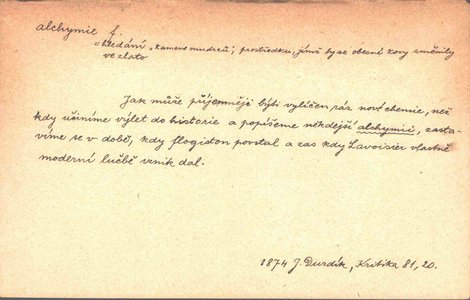 alchymie f.
= hledání „kamene mudrců", prostředku, jímž by se obecné kovy změnily
ve zlato
Jak může příjemněji býti vylíčen ráz nové chemie, než
kdy učiníme výlet do historie a popíšeme někdejší alchymii, zasta-
víme se v době, kdy flogiston povstal a zas kdy Lavoisier vlastně
moderní lučbě vznik dal.
1874 J. Durdík, Kritika 81, 20.